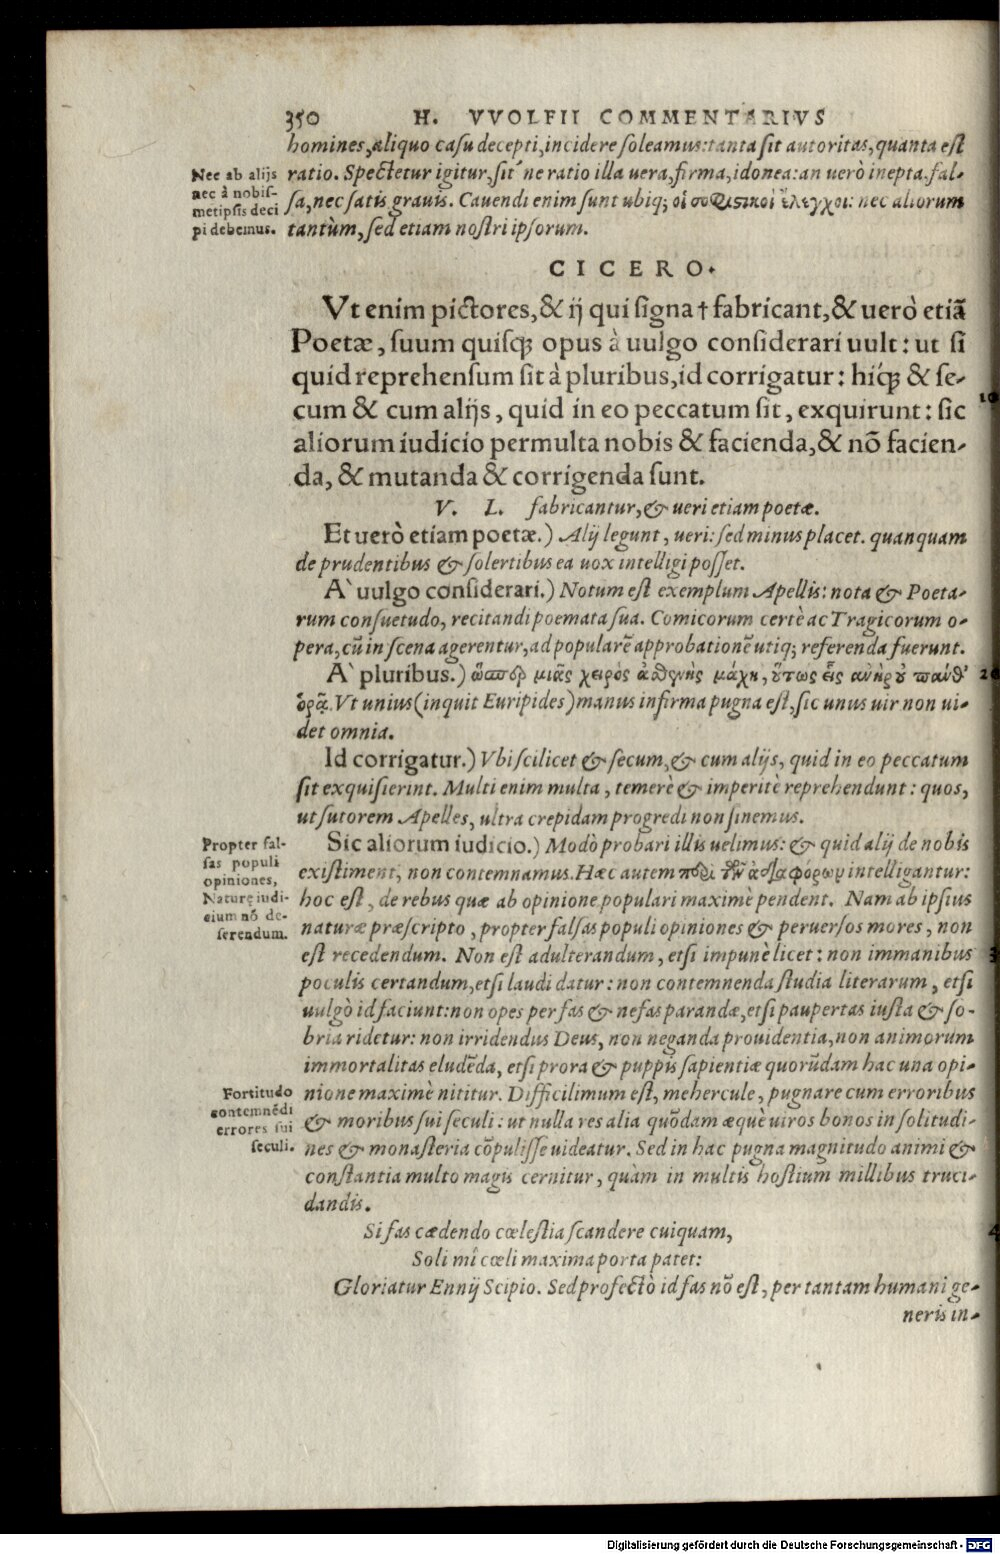 350 H. VVOLFII COMMENTARIVS
homines, aliquo casu decepti, incidere soleamus: tanta sit autoritas, quanta est
Nec ab alijs
nec à nobis-
metipsis deci
pi debemus.
ratio. Spectetur igitur, sit' ne ratio illa uera, firma, idonea: an uerò inepta, fal-
sa, nec satis grauis. Cauendi enim sunt ubiq; οἱ σοφιστικοὶ ἔλεγχοι: nec aliorum
tantùm, sed etiam nostri ipsorum.
CICERO.
Vt enim pictores, & ij qui signa † fabricant, & uerò etiã
Poetæ, suum quisq; opus à uulgo considerari uult: ut si
quid reprehensum sit à pluribus, id corrigatur: hiq́; & se-
cum & cum alijs, quid in eo peccatum sit, exquirunt: sic
10
aliorum iudicio permulta nobis & facienda, & nõ facien-
da, & mutanda & corrigenda sunt.
V. L. fabricantur, & ueri etiam poetæ.
Et uerò etiam poetæ.) Alij legunt, ueri: sed minus placet. quanquam
de prudentibus & solertibus ea uox intelligi posset.
A` uulgo considerari.) Notum est exemplum Apellis: nota & Poeta-
rum consuetudo, recitandi poemata sua. Comicorum certè ac Tragicorum o-
pera, cũ in scena agerentur, ad popularẽ approbationẽ utiq; referenda fuerunt.
A` pluribus.) ὥσπερ μιᾶς χειρὸς ἀσθενὴς μάχη, οὕτως εἷς ἀνὴρ οὐ πάνθ'
20
ὁρᾷ. Vt unius (inquit Euripides) manus infirma pugna est, sic unus uir non ui-
det omnia.
Id corrigatur.) Vbi scilicet & secum, & cum alijs, quid in eo peccatum
sit exquisierint. Multi enim multa, temerè & imperitè reprehendunt: quos,
ut sutorem Apelles, ultra crepidam progredi non sinemus.
Propter fal-
sas populi
opiniones,
Naturę iudi-
cium nõ de-
serendum.
Sic aliorum iudicio.) Modò probari illis uelimus: & quid alij de nobis
existiment, non contemnamus. Hæc autem περὶ τῶν ἀδιαφόρων intelligantur:
hoc est, de rebus quæ ab opinione populari maximè pendent. Nam ab ipsius
naturæ præscripto, propter falsas populi opiniones & peruersos mores, non
est recedendum. Non est adulterandum, etsi impunè licet: non immanibus
poculis certandum, etsi laudi datur: non contemnenda studia literarum, etsi
uulgò id faciunt: non opes per fas & nefas parandæ, etsi paupertas iusta & so-
bria ridetur: non irridendus Deus, non neganda prouidentia, non animorum
immortalitas eludẽda, etsi prora & puppis sapientiæ quorũdam hac una opi-
Fortitudo
contemnẽdi
errores sui
seculi.
nione maximè nititur. Difficilimum est, mehercule, pugnare cum erroribus
& moribus sui seculi: ut nulla res alia quõdam æquè uiros bonos in solitudi-
nes & monasteria cõpulisse uideatur. Sed in hac pugna magnitudo animi &
constantia multo magis cernitur, quàm in multis hostium millibus truci-
dandis.
Si fas cædendo cœlestia scandere cuiquam,
Soli mî cœli maxima porta patet:
Gloriatur Ennij Scipio. Sed profectò id fas nõ est, per tantam humani ge-
neris in-
Digitalisierung gefördert durch die Deutsche Forschungsgemeinschaft - DFG